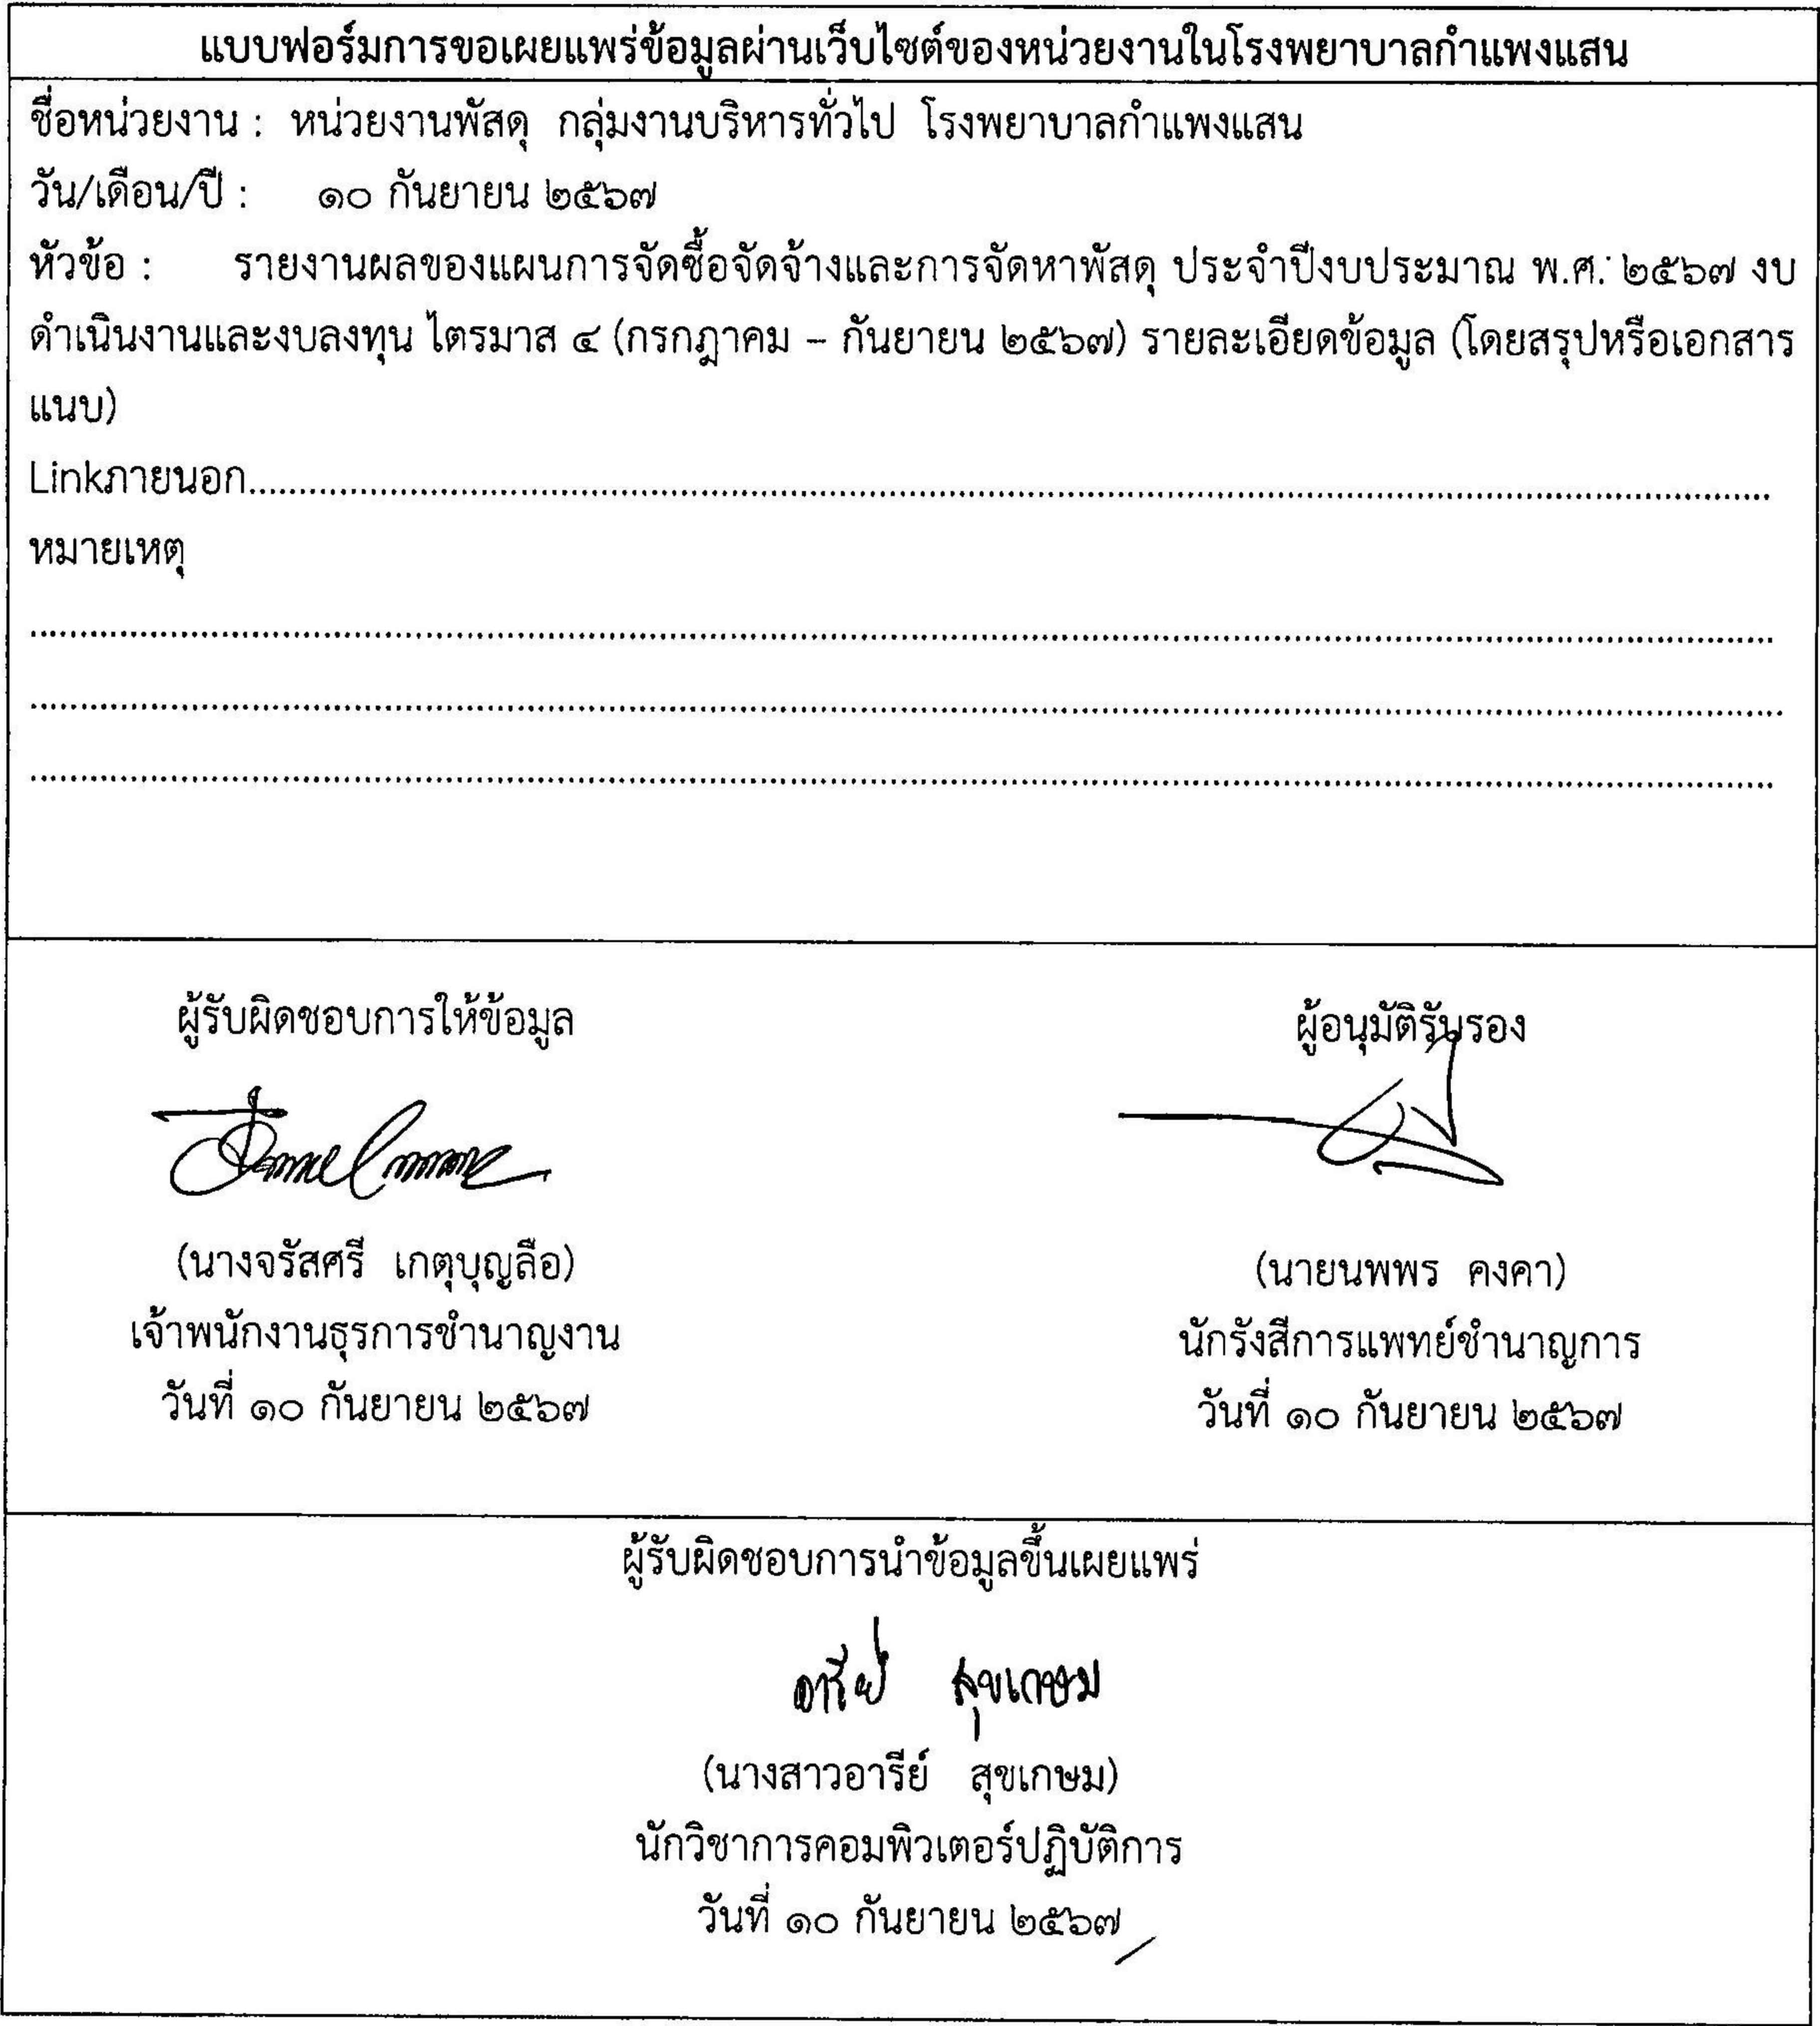 แบบฟอร์มการขอเผยแพร่ข้อมูลผ่านเว็บไซต์ของหน่วยงานในโรงพยาบาลกำแพงแสน
ชื่อหน่วยงาน : หน่วยงานพัสดุ กลุ่มงานบริหารทั่วไป โรงพยาบาลกำแพงแสน
วัน/เดือน/ปี : ๑๐ กันยายน ๒๕๖๗
หัวข้อ : รายงานผลของแผนการจัดซื้อจัดจ้างและการจัดหาพัสดุ ประจำปีงบประมาณ พ.ศ. ๒๕๖๗ งบ
ดำเนินงานและงบลงทุน ไตรมาส ๔ (กรกฎาคม – กันยายน ๒๕๖๗) รายละเอียดข้อมูล (โดยสรุปหรือเอกสาร
แนบ)
Linkภายนอก................................................................
หมายเหตุ
................................................................
................................................................
................................................................
ผู้รับผิดชอบการให้ข้อมูล
(นางจรัสศรี เกตุบุญลือ)
เจ้าพนักงานธุรการชำนาญงาน
วันที่ ๑๐ กันยายน ๒๕๖๗
ผู้อนุมัติรับรอง
(นายนพพร คงคา)
นักรังสีการแพทย์ชำนาญการ
วันที่ ๑๐ กันยายน ๒๕๖๗
ผู้รับผิดชอบการนำข้อมูลขึ้นเผยแพร่
อารีย์ สุขเกษม
(นางสาวอารีย์ สุขเกษม)
นักวิชาการคอมพิวเตอร์ปฏิบัติการ
วันที่ ๑๐ กันยายน ๒๕๖๗